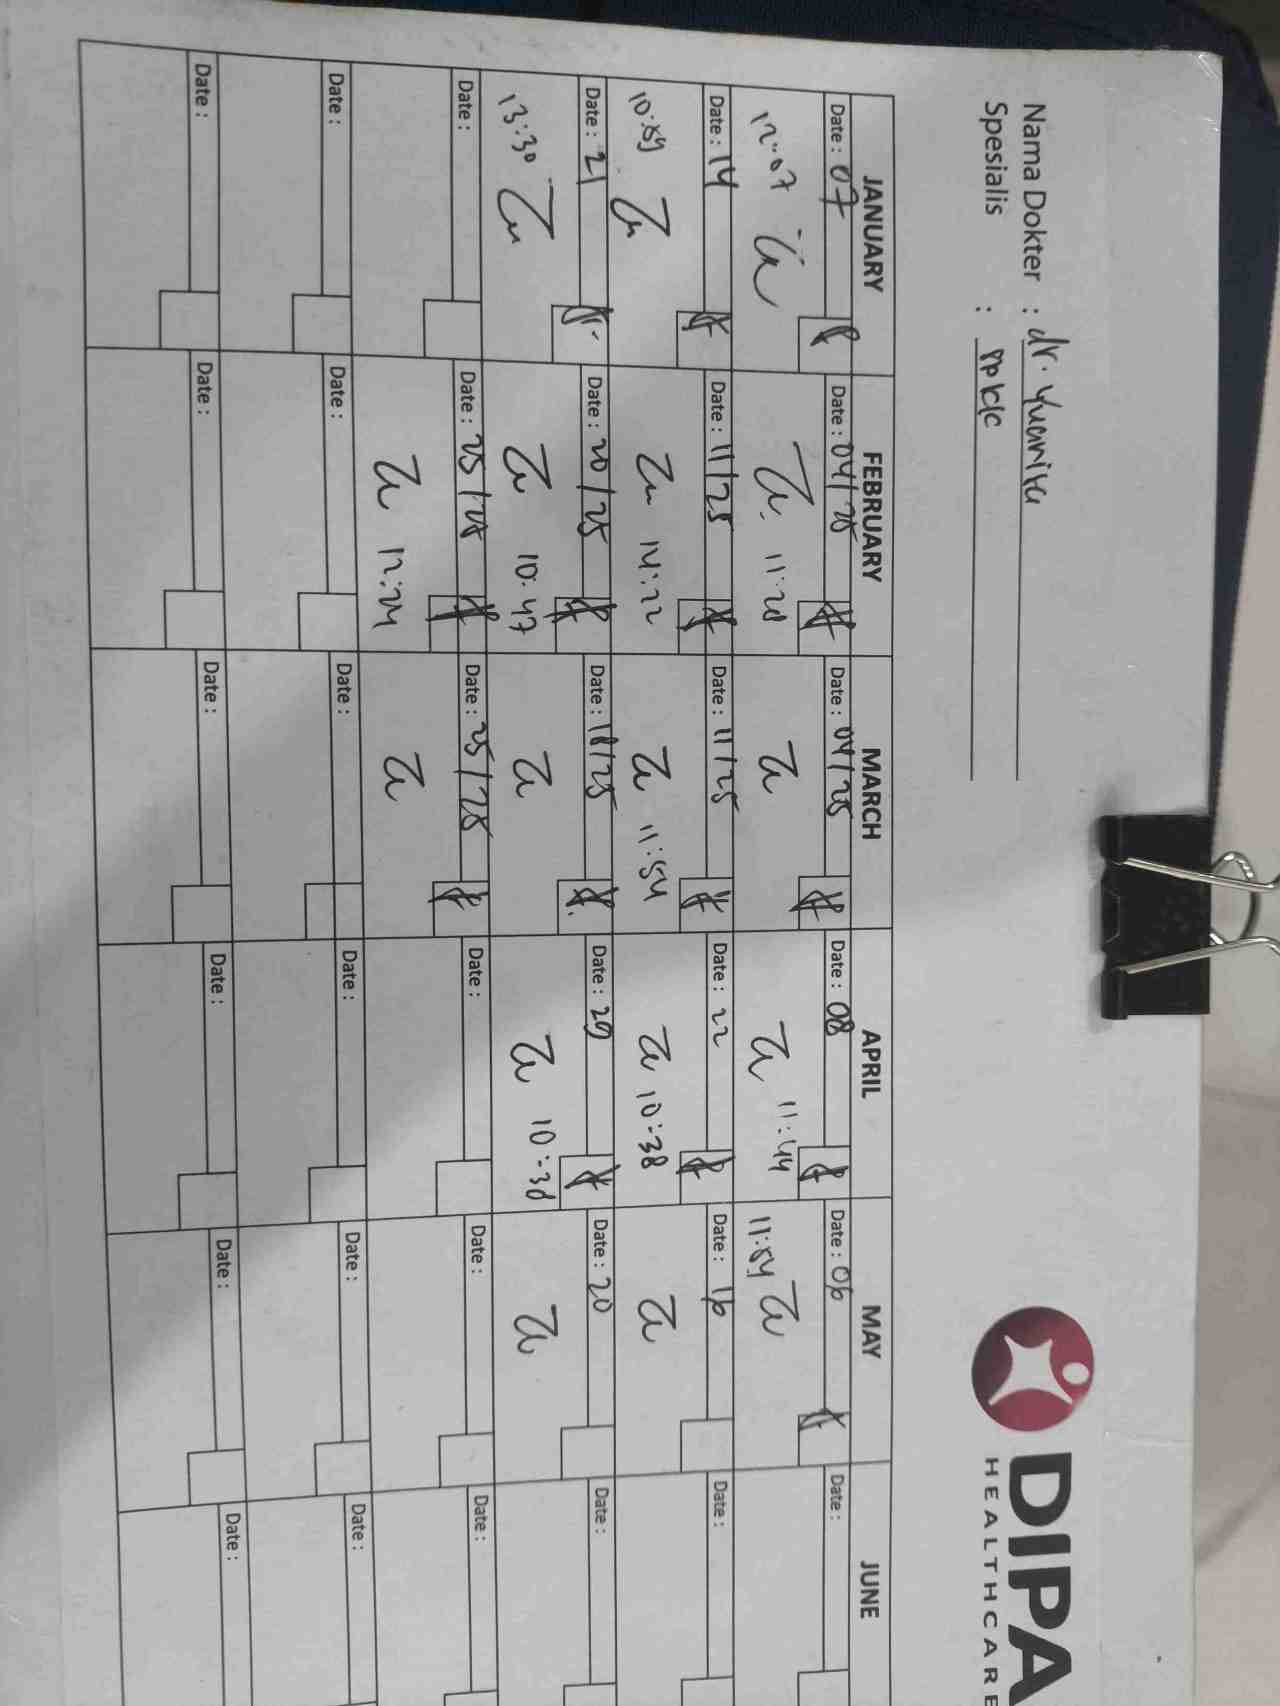 Nama Dokter : dr. Yuanita
Spesialis :
DIPA
HEALTHCARE
JANUARY FEBRUARY MARCH APRIL MAY JUNE
Date : 07 Date : 04/25 Date : 04/25 Date : 08 Date : 06 Date :
12:07 11:28 11:44 11:59
Date : 14 Date : 11/25 Date : 11/25 Date : 22 Date : 16 Date :
10:59 14:22 11:54 10:38
Date : 21 Date : 20/25 Date : 18/25 Date : 29 Date : 20 Date :
13:30 10:47 10:38
Date : Date : 25/25 Date : 25/25 Date : Date : Date :
12:24
Date : Date : Date : Date : Date : Date :
Date : Date : Date : Date : Date : Date :